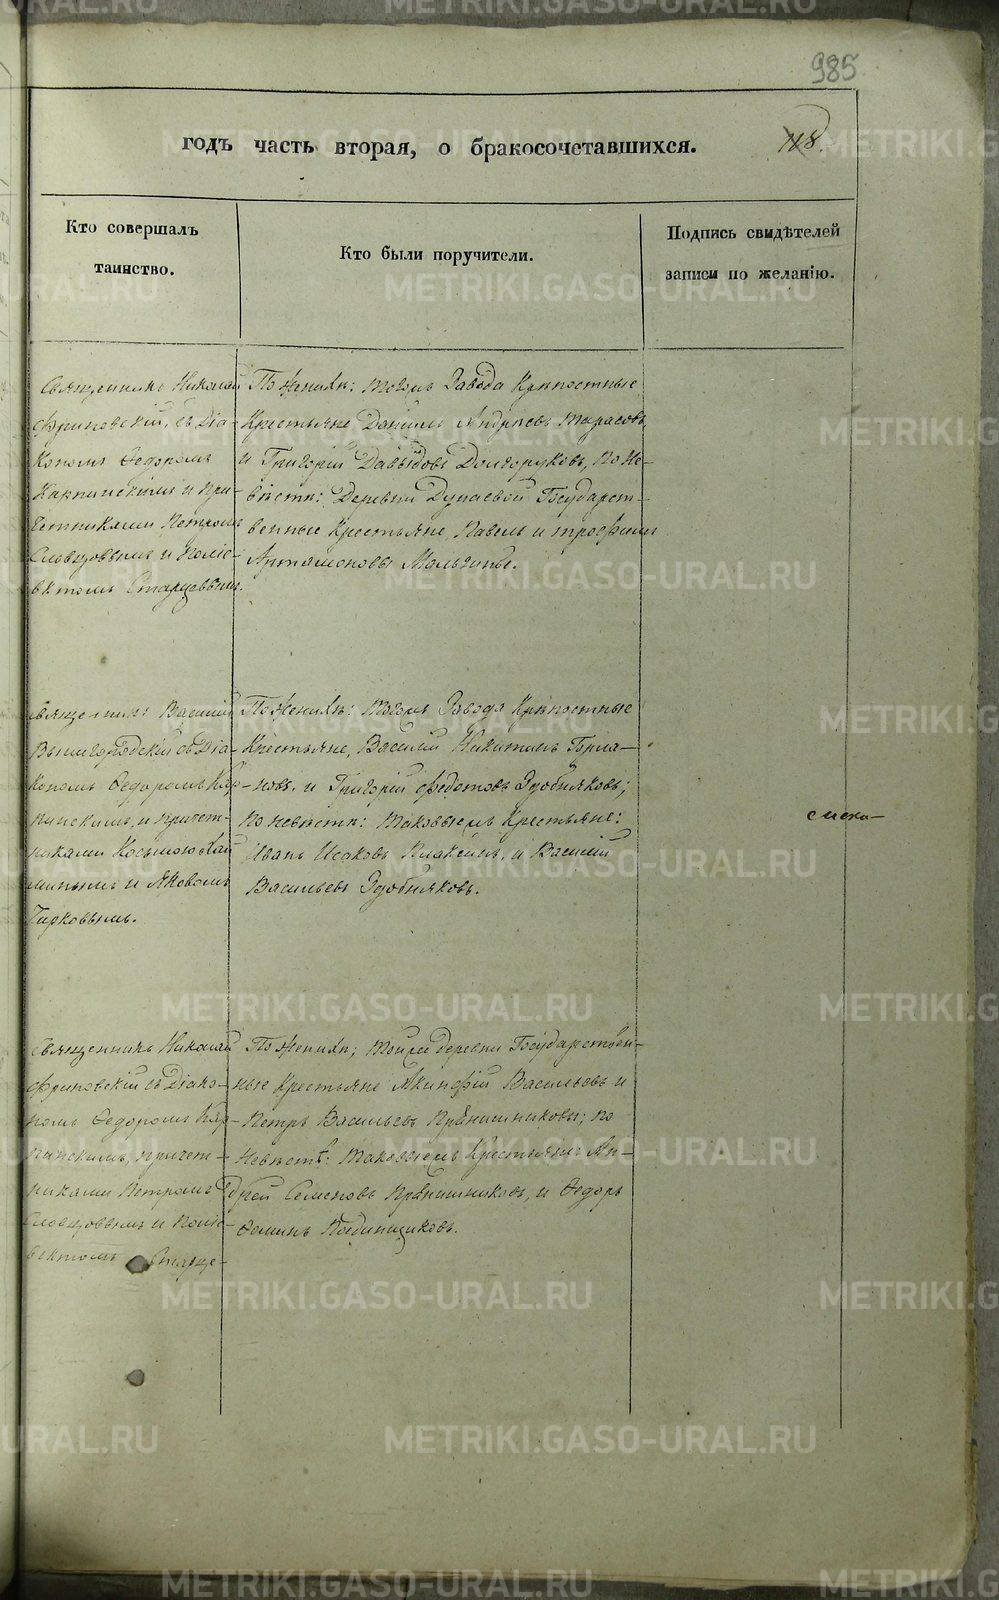 985
годъ часть вторая, о бракосочетавшихся.
118.
Кто совершалъ
таинство.
Кто были поручители.
Подпись свидѣтелей
записи по желанію.
Священникъ Николай
Фриновскій, съ Діа-
кономъ Ѳедоромъ
Карпинскимъ и при-
четниками Петромъ
Словцовымъ и Поліе-
вктомъ Старцевымъ.
По женихѣ: того Завода Крѣпостные
Крестьяне Даніилъ Андреевъ Тарасовъ,
и Григорій Давыдовъ Долгоруковъ, по не-
вѣстѣ: Деревни Дунаевой Государст-
венные Крестьяне Павелъ и Трофимъ
Артамоновы
Священникъ Василій
Вышегородскій съ Діа-
кономъ Ѳедоромъ Кар-
пинскимъ, и причет-
никами Косьмою
и Яковомъ
По женихѣ: того Завода Крѣпостные
Крестьяне, Василій Никитинъ Горла-
новъ и Григорій Федотовъ Здобняковъ;
по невѣстѣ: таковыежъ Крестьяне:
Иванъ Исаковъ Плаксинъ, и Василій
Васильевъ Здобняковъ.
Священникъ Николай
Фриновскій съ Діако-
номъ Ѳедоромъ Кар-
пинскимъ, причет-
никами Петромъ
Словцовымъ и Поліе-
вктомъ Старце-
По женихѣ; тойже деревни Государствен-
ные Крестьяне Акинфій Васильевъ и
Петръ Васильевъ Пряничниковы; по
невѣстѣ: таковыежъ Крестьяне Ан-
дрей Семеновъ Пряничниковъ, и Ѳедоръ
Ѳоминъ
METRIKI.GASO-URAL.RU